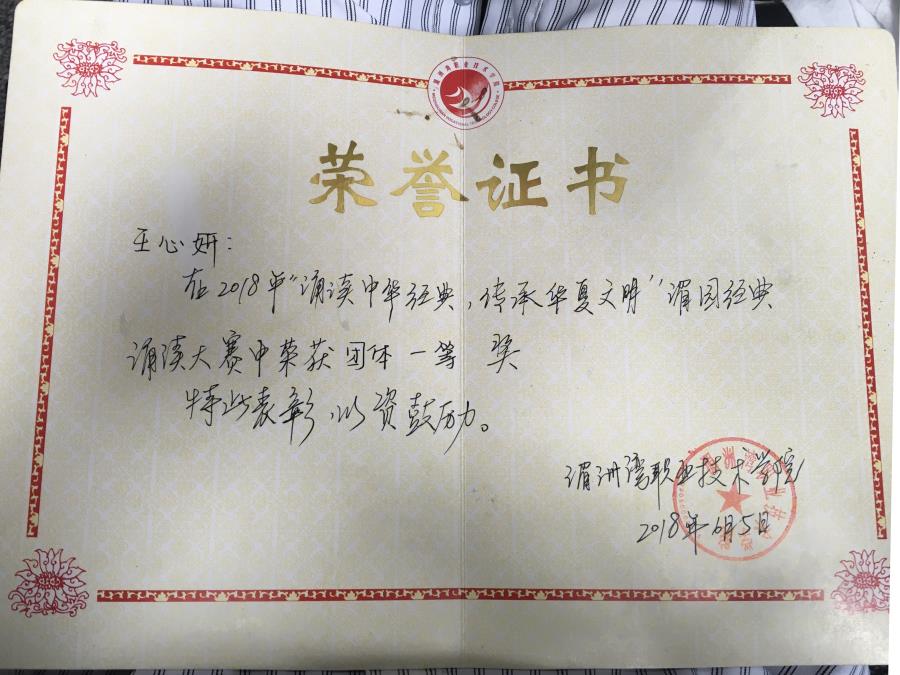 荣誉证书
王心妍：
在2018年“诵读中华经典，传承华夏文明”湄园经典
诵读大赛中荣获团体一等 奖
特此表彰，以资鼓励。
湄洲湾职业技术学院
2018年6月5日